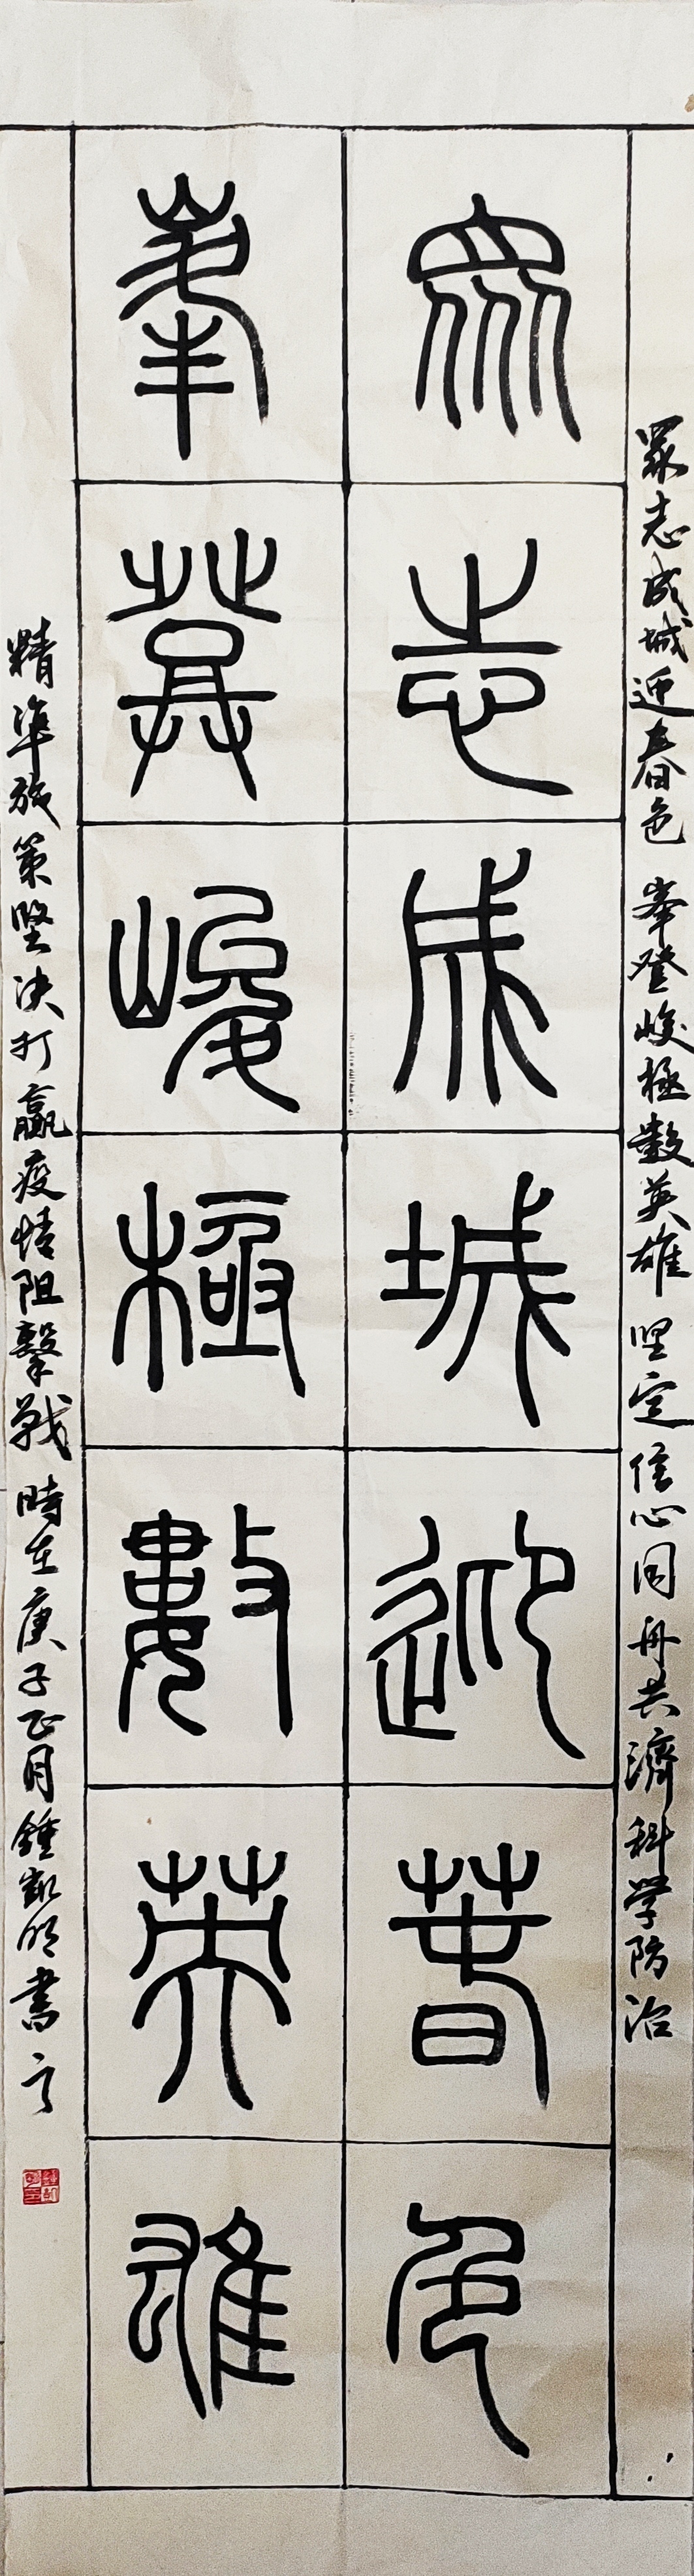 眾志成城迎春色
峯登峻極數英雄
眾志成城迎春色 峯登峻極數英雄 坚定信心同舟共濟科学防治
精準施策堅决打贏疫情阻擊戰 時在庚子正月鍾凱明書之